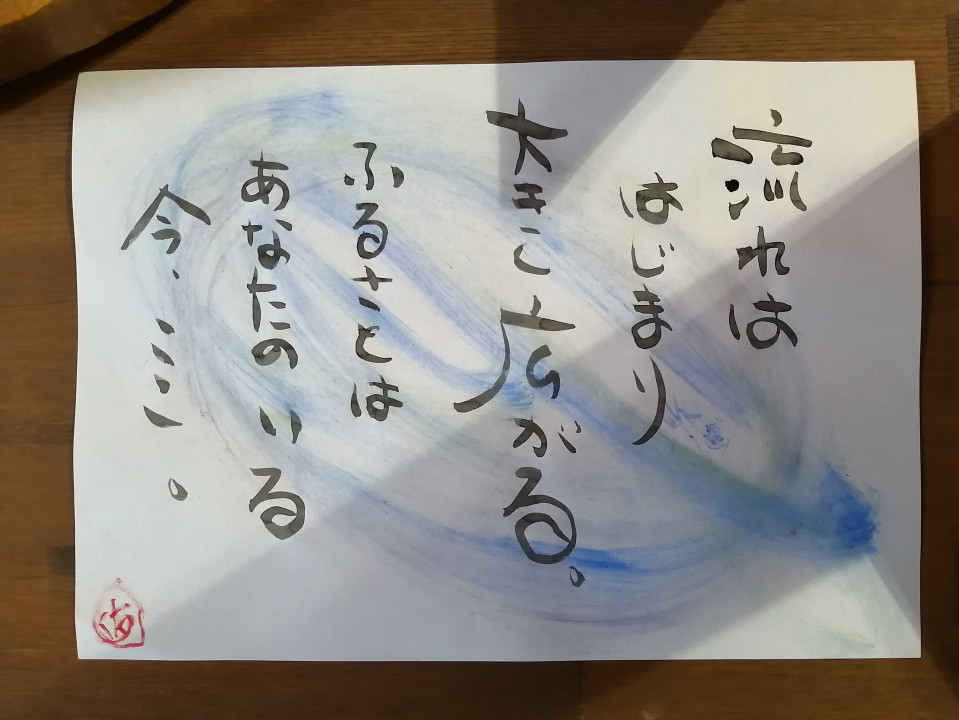 流れは
はじまり
大きく広がる。
ふるさとは
あなたのいる
今、ここ。